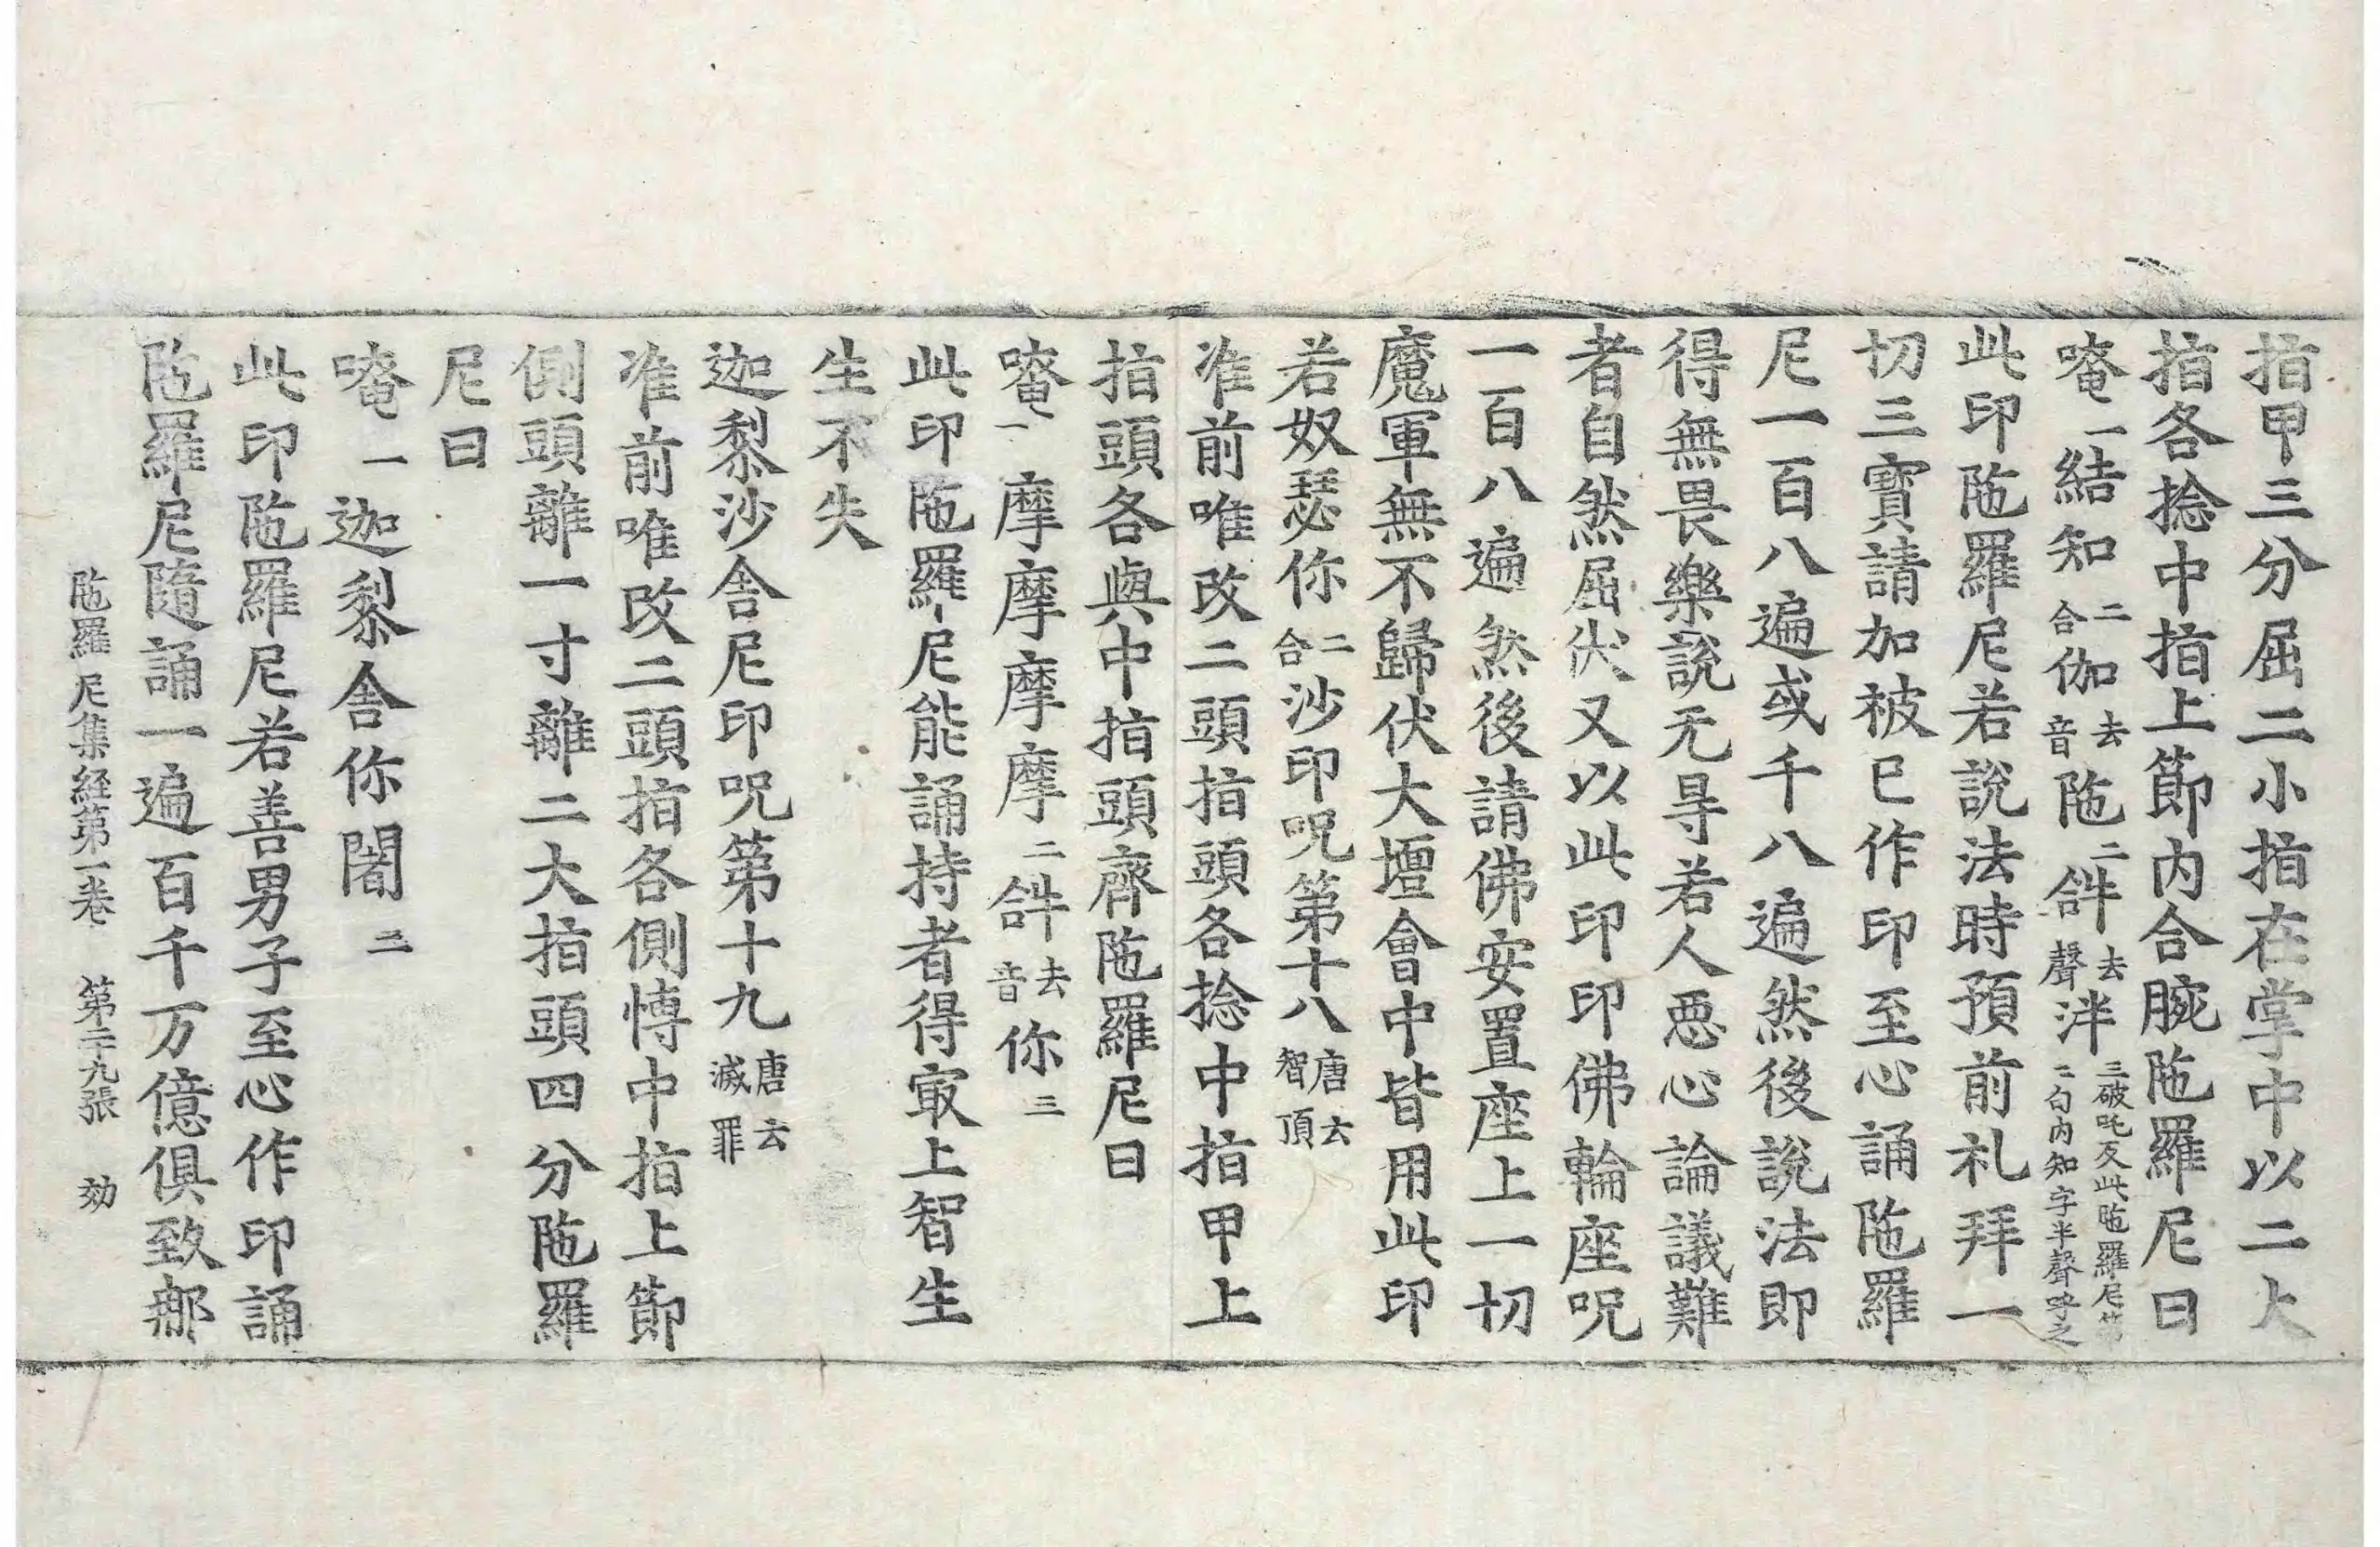 指甲三分屈二小指在掌中以二大
指各捻中指上節內合腕陁羅尼曰
唵一結知二合伽去音陁二𤙖去聲泮三破吒反此陁羅尼第二句內知字半聲呼之
此印陁羅尼若說法時預前礼拜一
切三寶請加被已作印至心誦陁羅
尼一百八遍或千八遍然後說法即
得無畏樂說无㝵若人悪心論議難
者自然屈伏又以此印印佛輪座呪
一百八遍然後請佛安置座上一切
魔軍無不歸伏大壇會中皆用此印
若奴瑟你二合沙印呪第十八唐云智頂
准前唯改二頭指頭各捻中指甲上
指頭各與中指頭齊陁羅尼曰
唵一摩摩摩摩二𤙖去音你三
此印陁羅尼能誦持者得㝡上智生
生不失
迦黎沙舍尼印呪第十九唐云滅罪
准前唯改二頭指各側愽中指上節
側頭離一寸離二大指頭四分陁羅
尼曰
唵一迦黎舍你闍二
此印陁羅尼若善男子至心作印誦
陁羅尼隨誦一遍百千万億俱致𨚗
陁羅尼集経第一卷 第二十九張 効